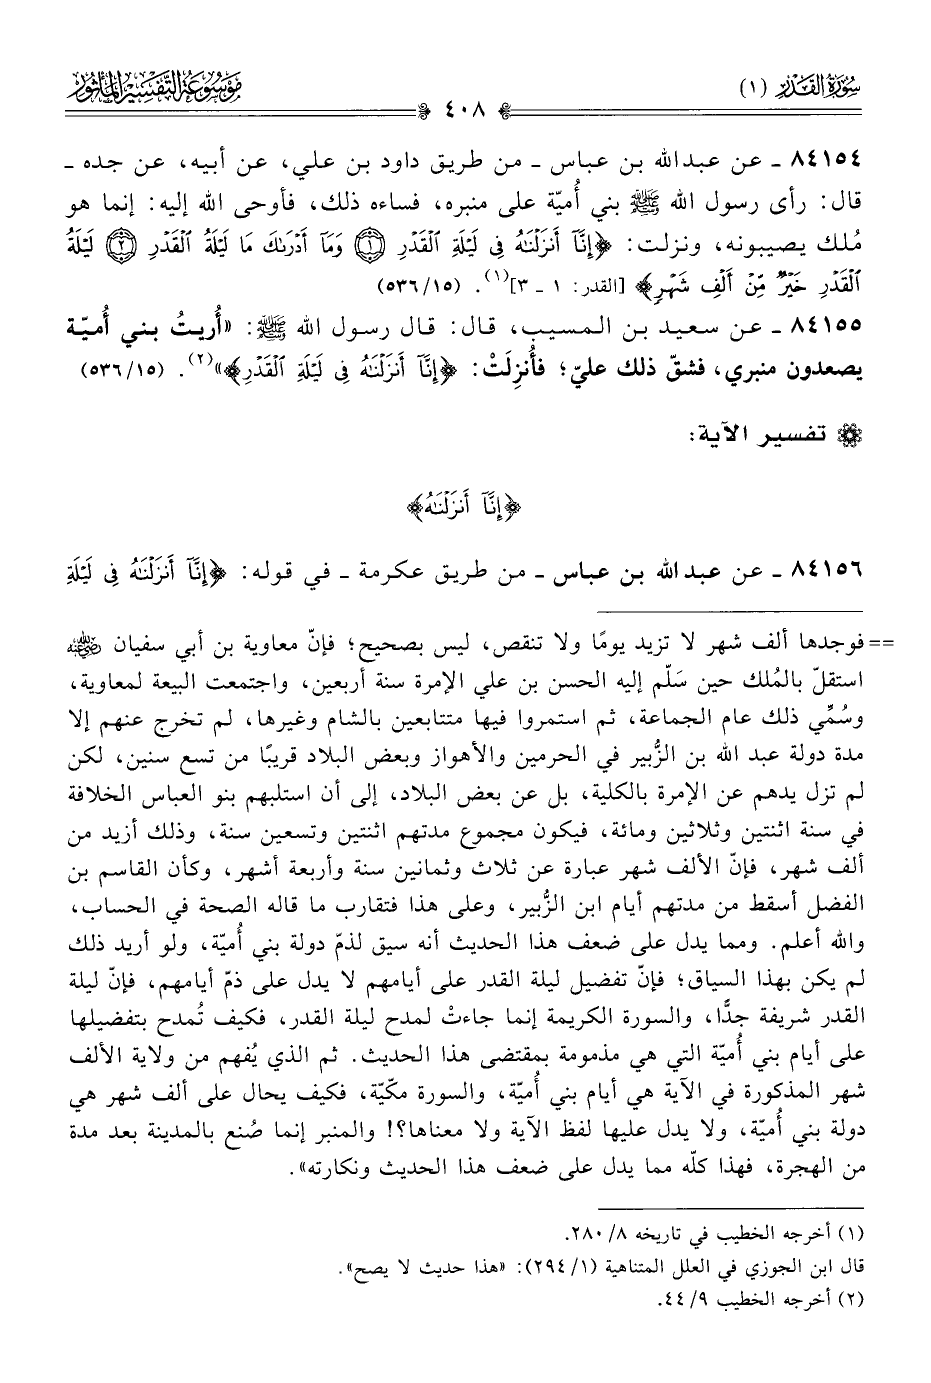 سُورَةُ القَدْرِ (١)
٤٠٨
مَوْسُوعَةُ التَّفْسِيرِ المَأْثُورِ
٨٤١٥٤ ـ عن عبدالله بن عباس ـ من طريق داود بن علي، عن أبيه، عن جده ـ
قال: رأى رسول الله ﷺ بني أُميّة على منبره، فساءه ذلك، فأوحى الله إليه: إنما هو
مُلك يصيبونه، ونزلت: ﴿إِنَّآ أَنزَلْنَٰهُ فِى لَيْلَةِ ٱلْقَدْرِ ۝١ وَمَآ أَدْرَىٰكَ مَا لَيْلَةُ ٱلْقَدْرِ ۝٢ لَيْلَةُ
ٱلْقَدْرِ خَيْرٌ مِّنْ أَلْفِ شَهْرٍ﴾ [القدر: ١ ـ ٣](١). (١٥/٥٣٦)
٨٤١٥٥ ـ عن سعيد بن المسيب، قال: قال رسول الله ﷺ: «أُريتُ بني أُميّة
يصعدون منبري، فشقّ ذلك عليّ؛ فأُنزِلَتْ: ﴿إِنَّآ أَنزَلْنَٰهُ فِى لَيْلَةِ ٱلْقَدْرِ﴾»(٢). (١٥/٥٣٦)
تفسير الآية:
﴿إِنَّآ أَنزَلْنَٰهُ﴾
٨٤١٥٦ ـ عن عبدالله بن عباس ـ من طريق عكرمة ـ في قوله: ﴿إِنَّآ أَنزَلْنَٰهُ فِى لَيْلَةِ
== فوجدها ألف شهر لا تزيد يومًا ولا تنقص، ليس بصحيح؛ فإنّ معاوية بن أبي سفيان رضي الله عنه
استقلّ بالمُلك حين سَلّم إليه الحسن بن علي الإمرة سنة أربعين، واجتمعت البيعة لمعاوية،
وسُمِّي ذلك عام الجماعة، ثم استمروا فيها متتابعين بالشام وغيرها، لم تخرج عنهم إلا
مدة دولة عبد الله بن الزُّبير في الحرمين والأهواز وبعض البلاد قريبًا من تسع سنين، لكن
لم تزل يدهم عن الإمرة بالكلية، بل عن بعض البلاد، إلى أن استلبهم بنو العباس الخلافة
في سنة اثنتين وثلاثين ومائة، فيكون مجموع مدتهم اثنتين وتسعين سنة، وذلك أزيد من
ألف شهر، فإنّ الألف شهر عبارة عن ثلاث وثمانين سنة وأربعة أشهر، وكأن القاسم بن
الفضل أسقط من مدتهم أيام ابن الزُّبير، وعلى هذا فتقارب ما قاله الصحة في الحساب،
والله أعلم. ومما يدل على ضعف هذا الحديث أنه سيق لذمّ دولة بني أُميّة، ولو أريد ذلك
لم يكن بهذا السياق؛ فإنّ تفضيل ليلة القدر على أيامهم لا يدل على ذمّ أيامهم، فإنّ ليلة
القدر شريفة جدًّا، والسورة الكريمة إنما جاءتْ لمدح ليلة القدر، فكيف تُمدح بتفضيلها
على أيام بني أُميّة التي هي مذمومة بمقتضى هذا الحديث. ثم الذي يُفهم من ولاية الألف
شهر المذكورة في الآية هي أيام بني أُميّة، والسورة مكّيّة، فكيف يحال على ألف شهر هي
دولة بني أُميّة، ولا يدل عليها لفظ الآية ولا معناها؟! والمنبر إنما صُنع بالمدينة بعد مدة
من الهجرة، فهذا كلّه مما يدل على ضعف هذا الحديث ونكارته».
(١) أخرجه الخطيب في تاريخه ٨/ ٢٨٠.
قال ابن الجوزي في العلل المتناهية (١/ ٢٩٤): «هذا حديث لا يصح».
(٢) أخرجه الخطيب ٩/ ٤٤.